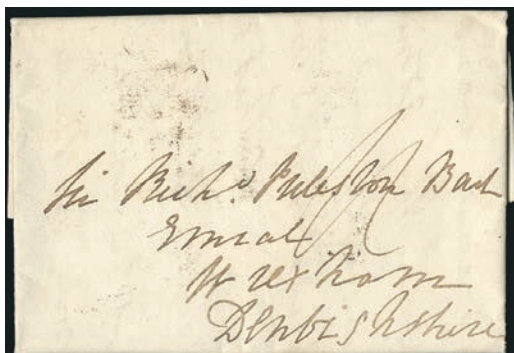 Sir Richd. Puleston Bart
Emral
Wrexham
Denbighshire